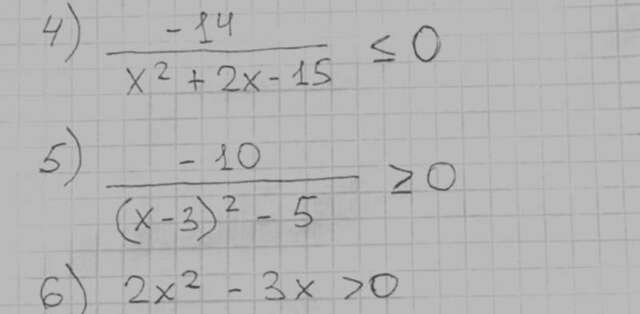 4) -14 / x² + 2x - 15 ≤ 0
5) -10 / (x-3)² - 5 ≥ 0
6) 2x² - 3x > 0